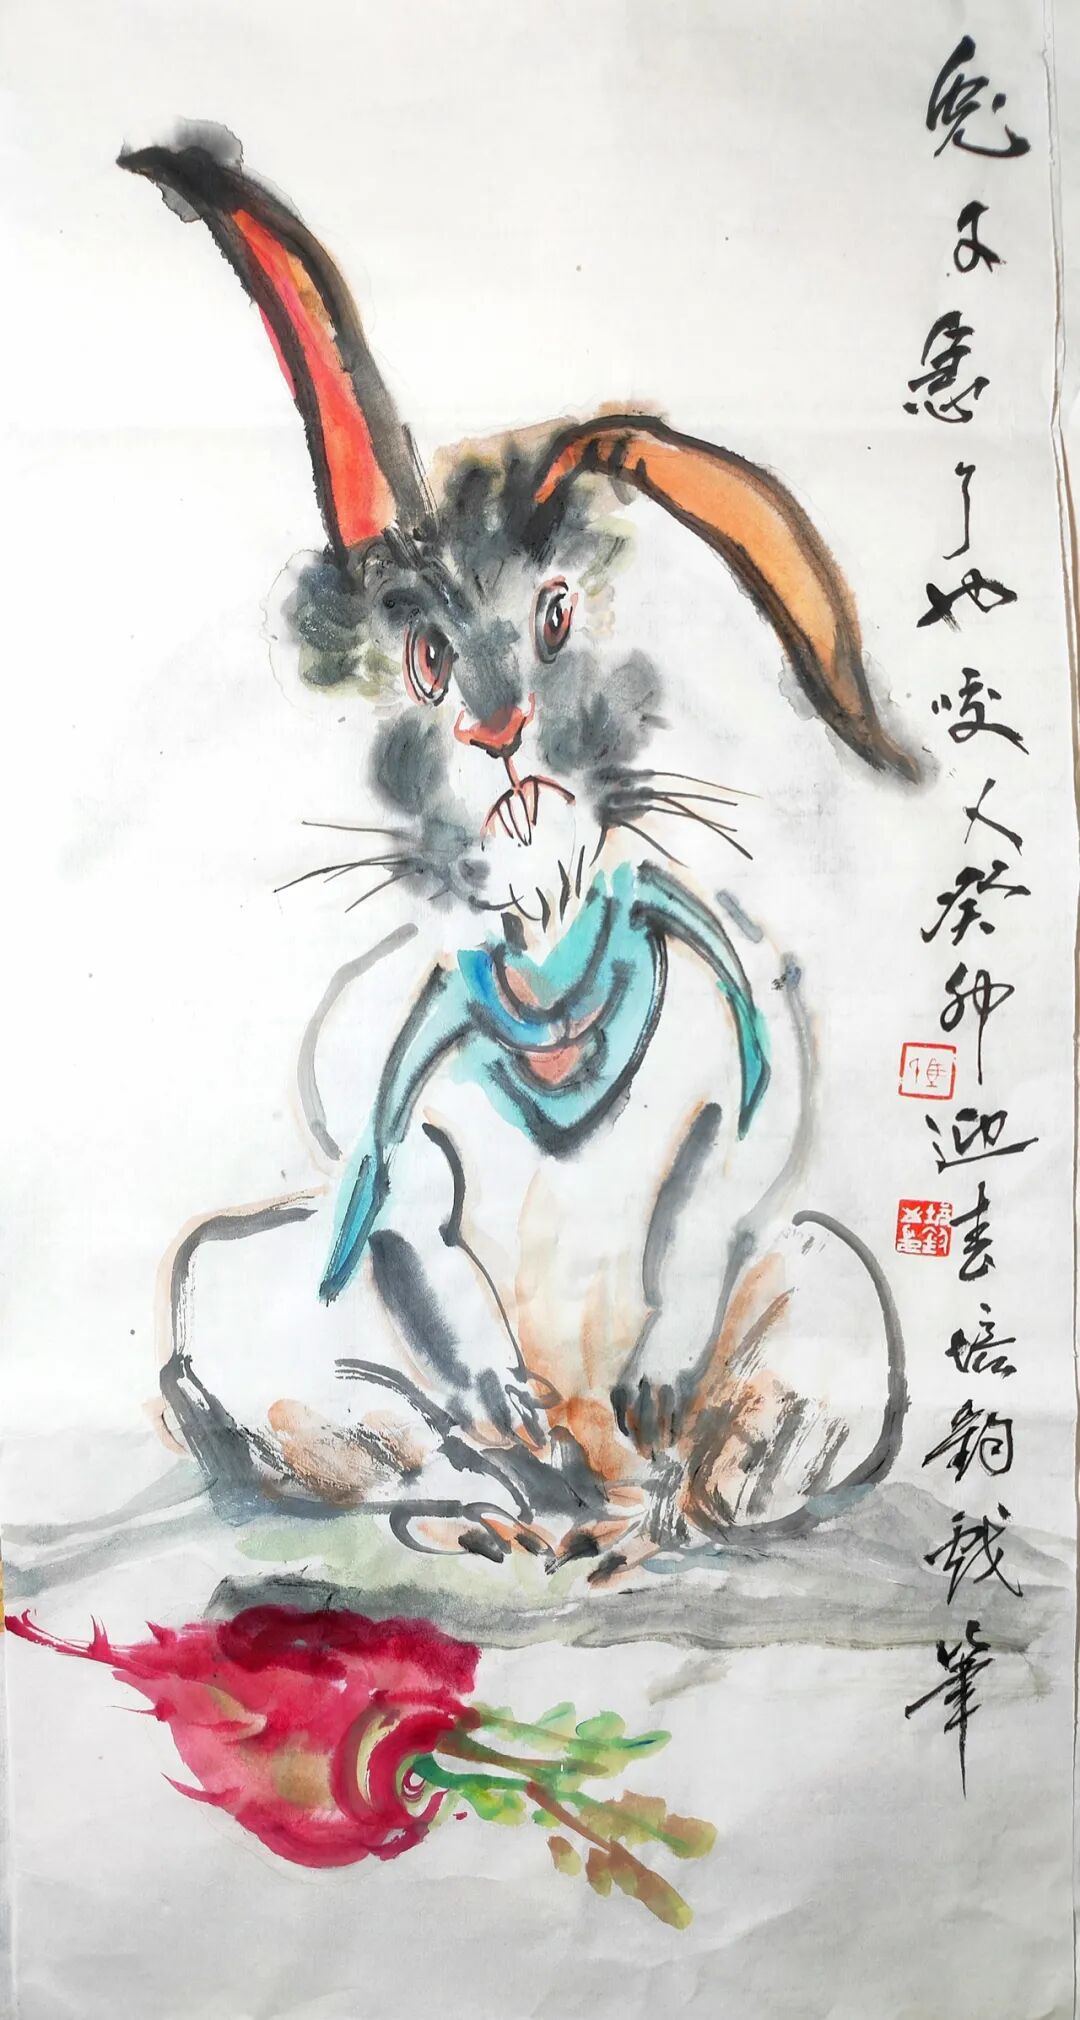 兔子急了也咬人癸卯迎春培韵戏筆